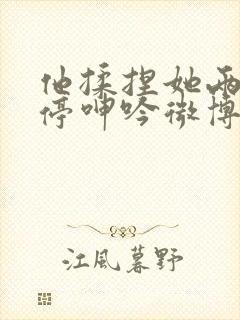 他揉捏她两
停呻吟微博
江風暮野